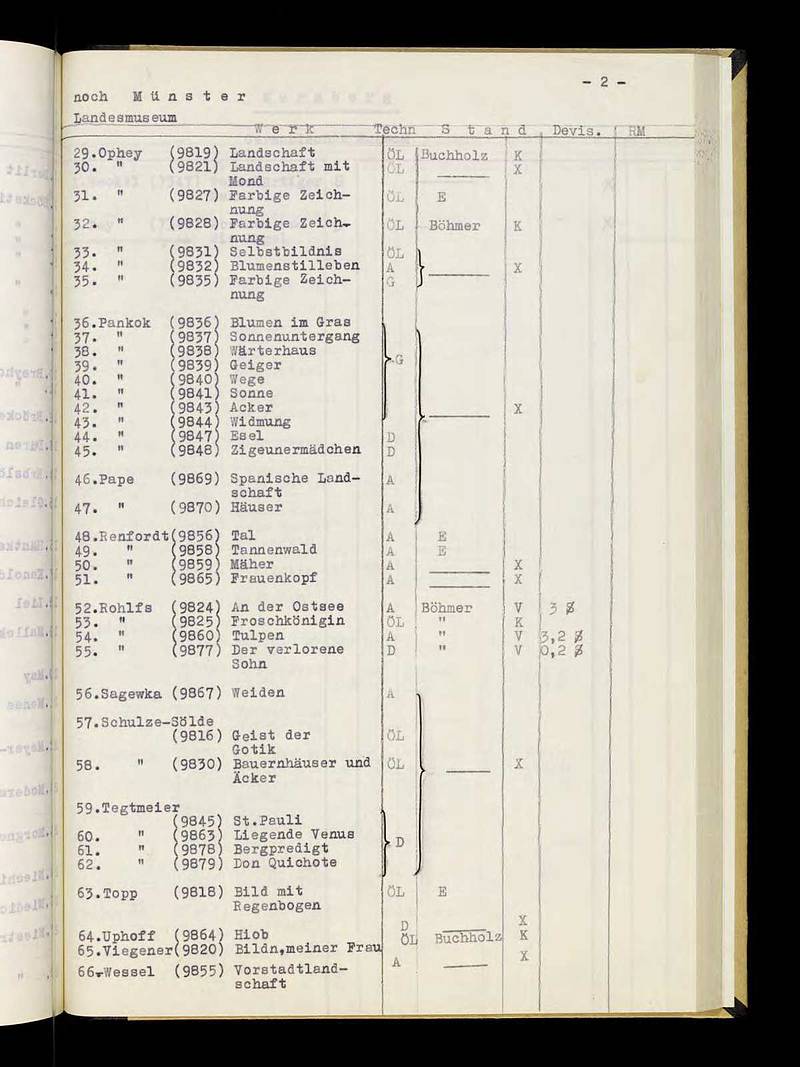 - 2 -
noch M ü n s t e r
Landesmuseum
W e r k Techn S t a n d Devis. RM
29.Ophey (9819) Landschaft ÖL Buchholz K
30. " (9821) Landschaft mit ÖL ―――― X
Mond
31. " (9827) Farbige Zeich- ÖL E
nung
32. " (9828) Farbige Zeich- ÖL Böhmer K
nung
33. " (9831) Selbstbildnis ÖL
34. " (9832) Blumenstilleben A ―――― X
35. " (9835) Farbige Zeich- G
nung
36.Pankok (9836) Blumen im Gras
37. " (9837) Sonnenuntergang
38. " (9838) Wärterhaus
39. " (9839) Geiger G
40. " (9840) Wege
41. " (9841) Sonne
42. " (9843) Acker ―――― X
43. " (9844) Widmung
44. " (9847) Esel D
45. " (9848) Zigeunermädchen D
46.Pape (9869) Spanische Land- A
schaft
47. " (9870) Häuser A
48.Renfordt(9856) Tal A E
49. " (9858) Tannenwald A E
50. " (9859) Mäher A ―――― X
51. " (9865) Frauenkopf A ―――― X
52.Rohlfs (9824) An der Ostsee A Böhmer V 3 $
53. " (9825) Froschkönigin ÖL " K
54. " (9860) Tulpen A " V 3,2 $
55. " (9877) Der verlorene D " V 0,2 $
Sohn
56.Sagewka (9867) Weiden A
57.Schulze-Sölde
(9816) Geist der ÖL
Gotik
58. " (9830) Bauernhäuser und ÖL ―――― X
Äcker
59.Tegtmeier
(9845) St.Pauli
60. " (9863) Liegende Venus D
61. " (9878) Bergpredigt
62. " (9879) Don Quichote
63.Topp (9818) Bild mit ÖL E
Regenbogen
64.Uphoff (9864) Hiob D ―――― X
65.Viegener(9820) Bildn,meiner Frau ÖL Buchholz K
66.Wessel (9855) Vorstadtland- A ―――― X
schaft